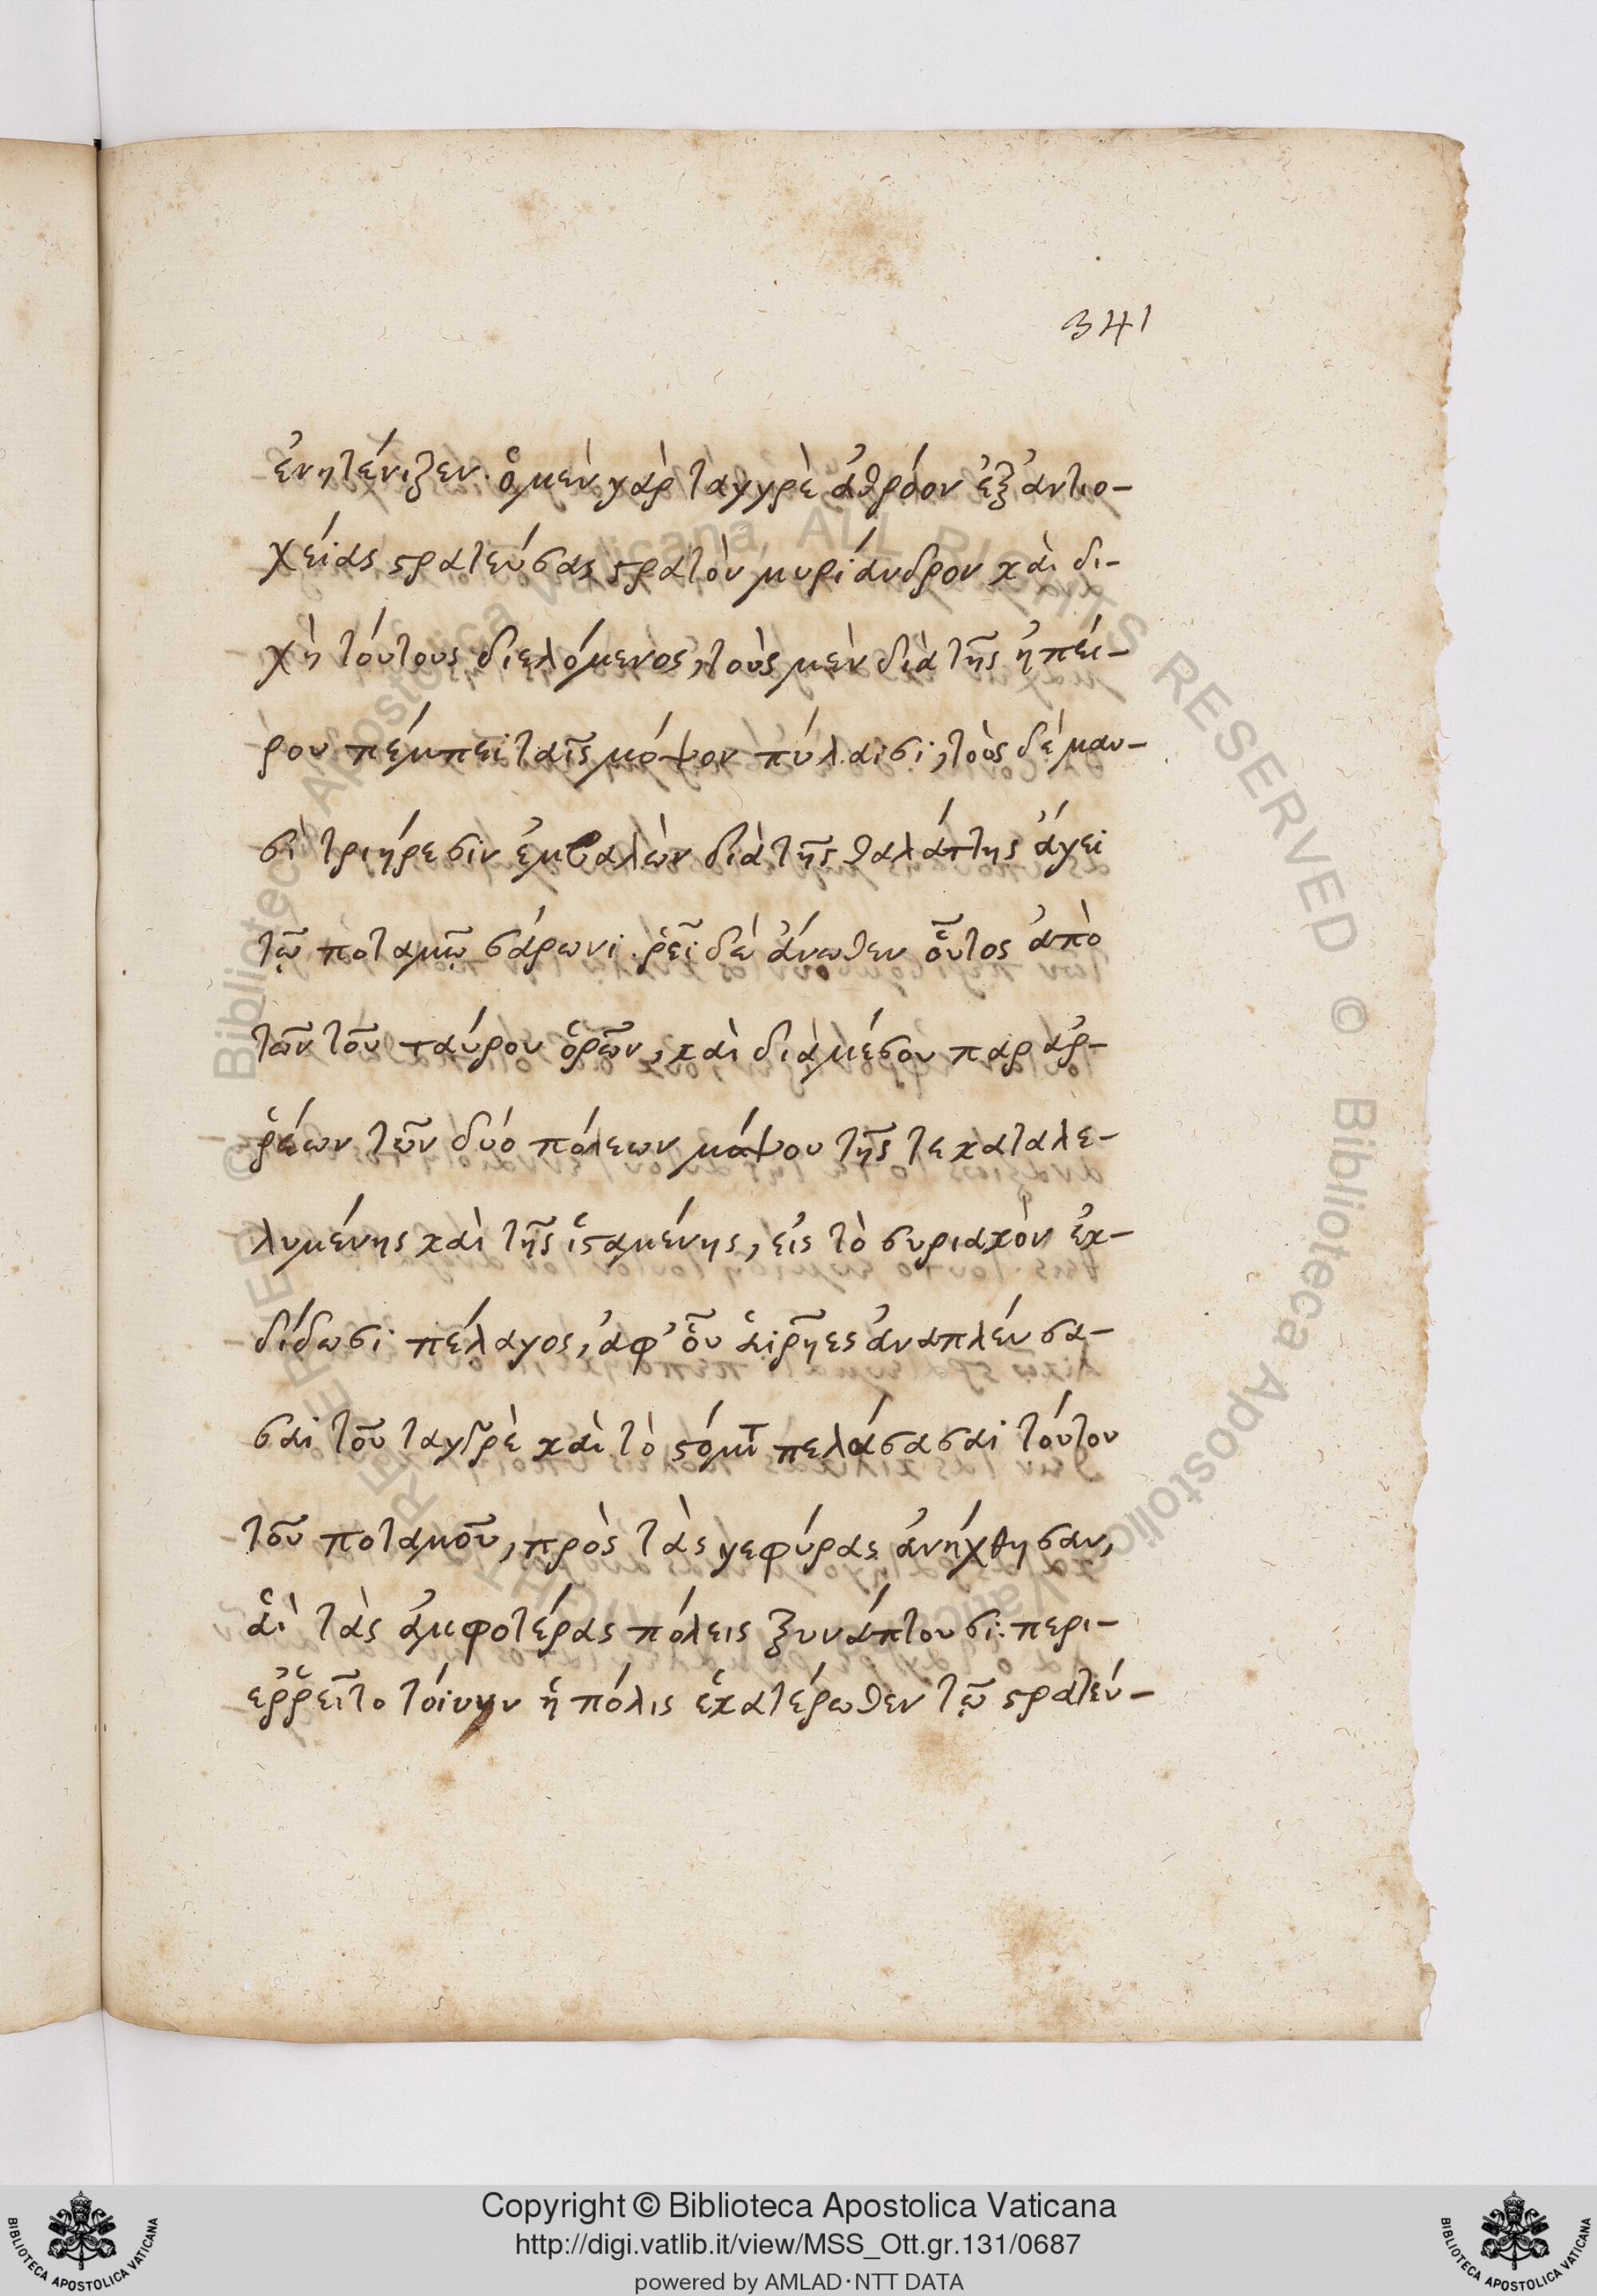 341
ἐνητένιζεν. ὁ μὲν γὰρ ταγγρὲ ἀθρόον ἐξ ἀντιο-
χείας στρατεύσας στρατὸν μυρίανδρον καὶ δι-
χὴ τούτους διελόμενος, τοὺς μὲν διὰ τῆς ἠπεί-
ρου πέμπει ταῖς μόψον πύλαισι, τοὺς δέ μαυ-
σὶ τριήρεσιν ἐμβαλὼν διὰ τῆς θαλάττης ἄγει
τῷ ποταμῷ σάρωνι. ῥεῖ δὲ ἄνωθεν οὗτος ἀπὸ
τῶν τοῦ ταύρου ὁρῶν, καὶ διὰ μέσου παραῤ-
ῥέων τῶν δύο πόλεων μόψου τῆς τε καταλε-
λυμένης καὶ τῆς ἱσταμένης, εἰς τὸ συριακὸν ἐκ-
δίδωσι πέλαγος, ἀφ' οὗ αἱ ῥῆες ἀναπλεύσα-
σαι τοῦ ταγγρὲ καὶ τὸ στόμα πελάσασαι τούτου
τοῦ ποταμοῦ, πρὸς τὰς γεφύρας ἀνήχθησαν,
αἳ τὰς ἀμφοτέρας πόλεις ξυνάπτουσι. περι-
εῤῥεῖτο τοίνυν ἡ πόλις ἑκατέρωθεν τῷ στρατεύ-
Copyright © Biblioteca Apostolica Vaticana
http://digi.vatlib.it/view/MSS_Ott.gr.131/0687
powered by AMLAD·NTT DATA
BIBLIOTECA APOSTOLICA VATICANA
BIBLIOTECA APOSTOLICA VATICANA
© Biblioteca Apostolica Vaticana, ALL RIGHTS RESERVED © Biblioteca Apostolica Vaticana, ALL RIGHTS RESERVED